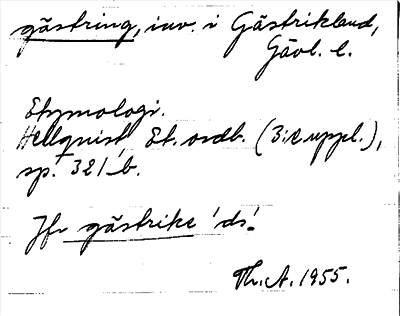 gästring, inv. i Gästrikland,
Gävl. l.
Etymologi.
Hellquist, Et. ordb. (3:e uppl.),
sp. 321 b.
Jfr gästrike 'ds'.
Th. A. 1955.